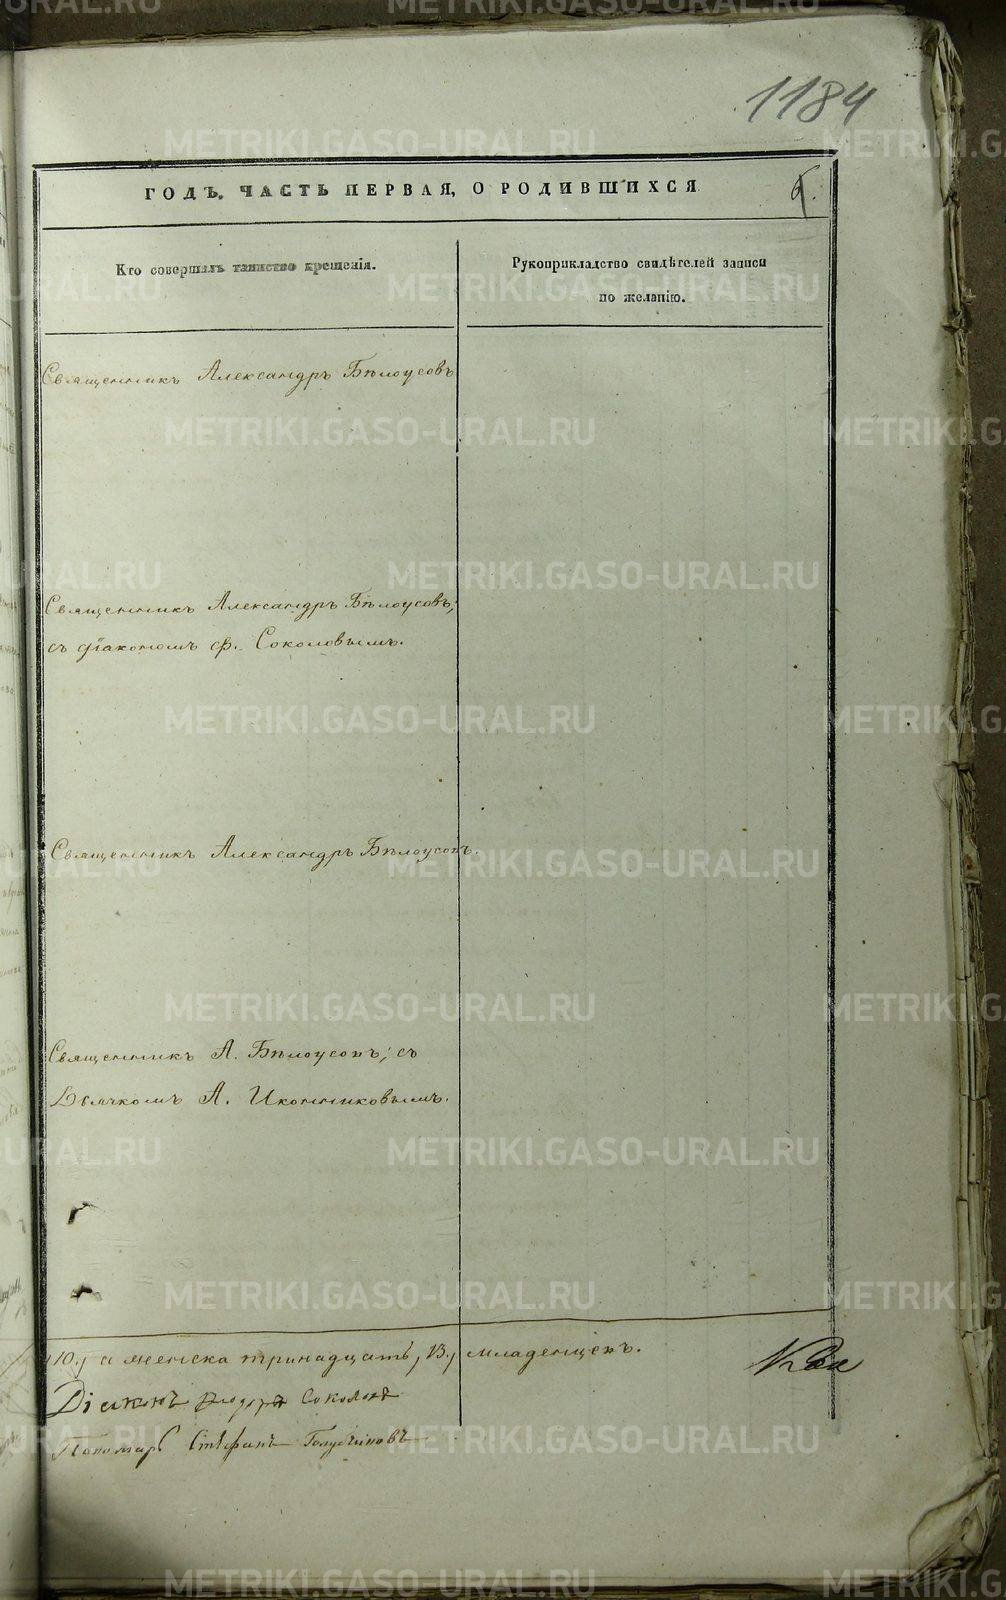 1184
ГОДЪ, ЧАСТЬ ПЕРВАЯ, О РОДИВШИХСЯ
Кто совершалъ таинство крещенія.
Рукоприкладство свидѣтелей записи
по желанію.
Священникъ Александръ Бѣлоусовъ
Священникъ Александръ Бѣлоусовъ;
съ діакономъ Ф. Соколовымъ.
Священникъ Александръ Бѣлоусовъ.
Священникъ А. Бѣлоусовъ; съ
Дьячкомъ А. Иконниковымъ.
10.) а женска тринадцать, 13.) младенцевъ.
Діаконъ Ѳеодоръ Соколовъ
Пономарь Стефанъ Голубчиковъ
METRIKI.GASO-URAL.RU